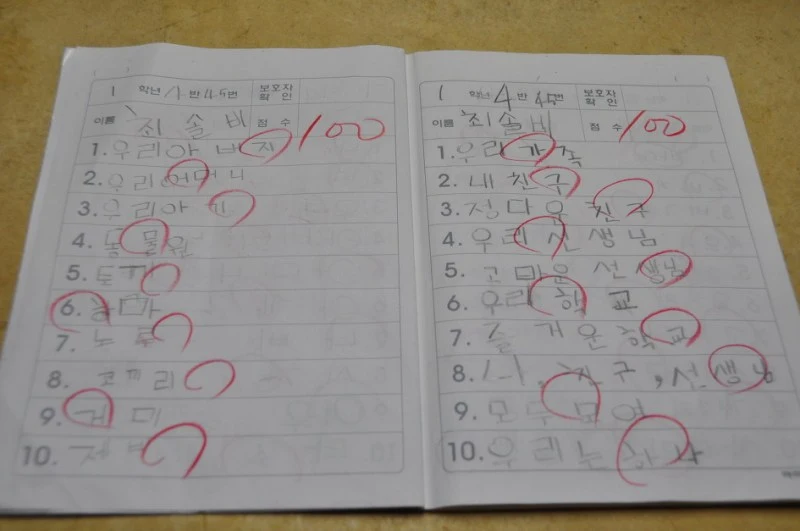 1 학년 4 반 45번 보호자 확인
이름 최솔비 점수 100
1. 우리아버지
2. 우리어머니
3. 우리아기
4. 동물원
5. 토끼
6. 하마
7. 노루
8. 코끼리
9. 거미
10. 제비
1 학년 4 반 45번 보호자 확인
이름 최솔비 점수 100
1. 우리 가족
2. 내 친구
3. 정다운 친구
4. 우리 선생님
5. 고마운 선생님
6. 우리 학교
7. 즐거운 학교
8. 나, 친구, 선생님
9. 모두 모여
10. 우리는 하나